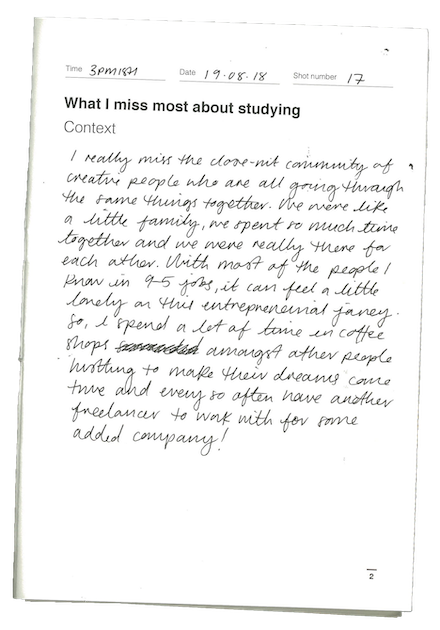 Time 3PM ISH Date 19.08.18 Shot number 17
What I miss most about studying
Context
I really miss the close-nit community of
creative people who are all going through
the same things together. We were like
a little family, we spent so much time
together and we were really there for
each other. With most of the people I
know in 9-5 jobs, it can feel a little
lonely on this entrepreneurial
So, I spend a lot of time in coffee
shops amongst other people
hustling to make their dreams come
true and every so often have another
freelancer to work with for some
added company!
2